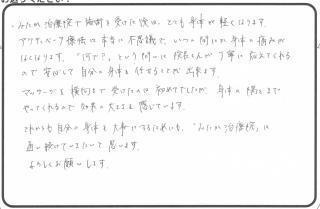 みたか治療院で施術を受けた後は、とても身体が軽くなります。
アクティベータ療法は本当に不思議で、いつの間にか身体の痛みが
なくなります。"何で？"という問いに院長さんが丁寧に伝えてくれる
ので安心して自分の身体を任せることが出来ます。
マッサージを横向きで受けたのは初めてでしたが、身体の隅々まで
やってくれるので効果の大きさを感じています。
これからも自分の身体を大事にするためにも、"みたか治療院"に
通い続けていきたいと思います。
よろしくお願いします。